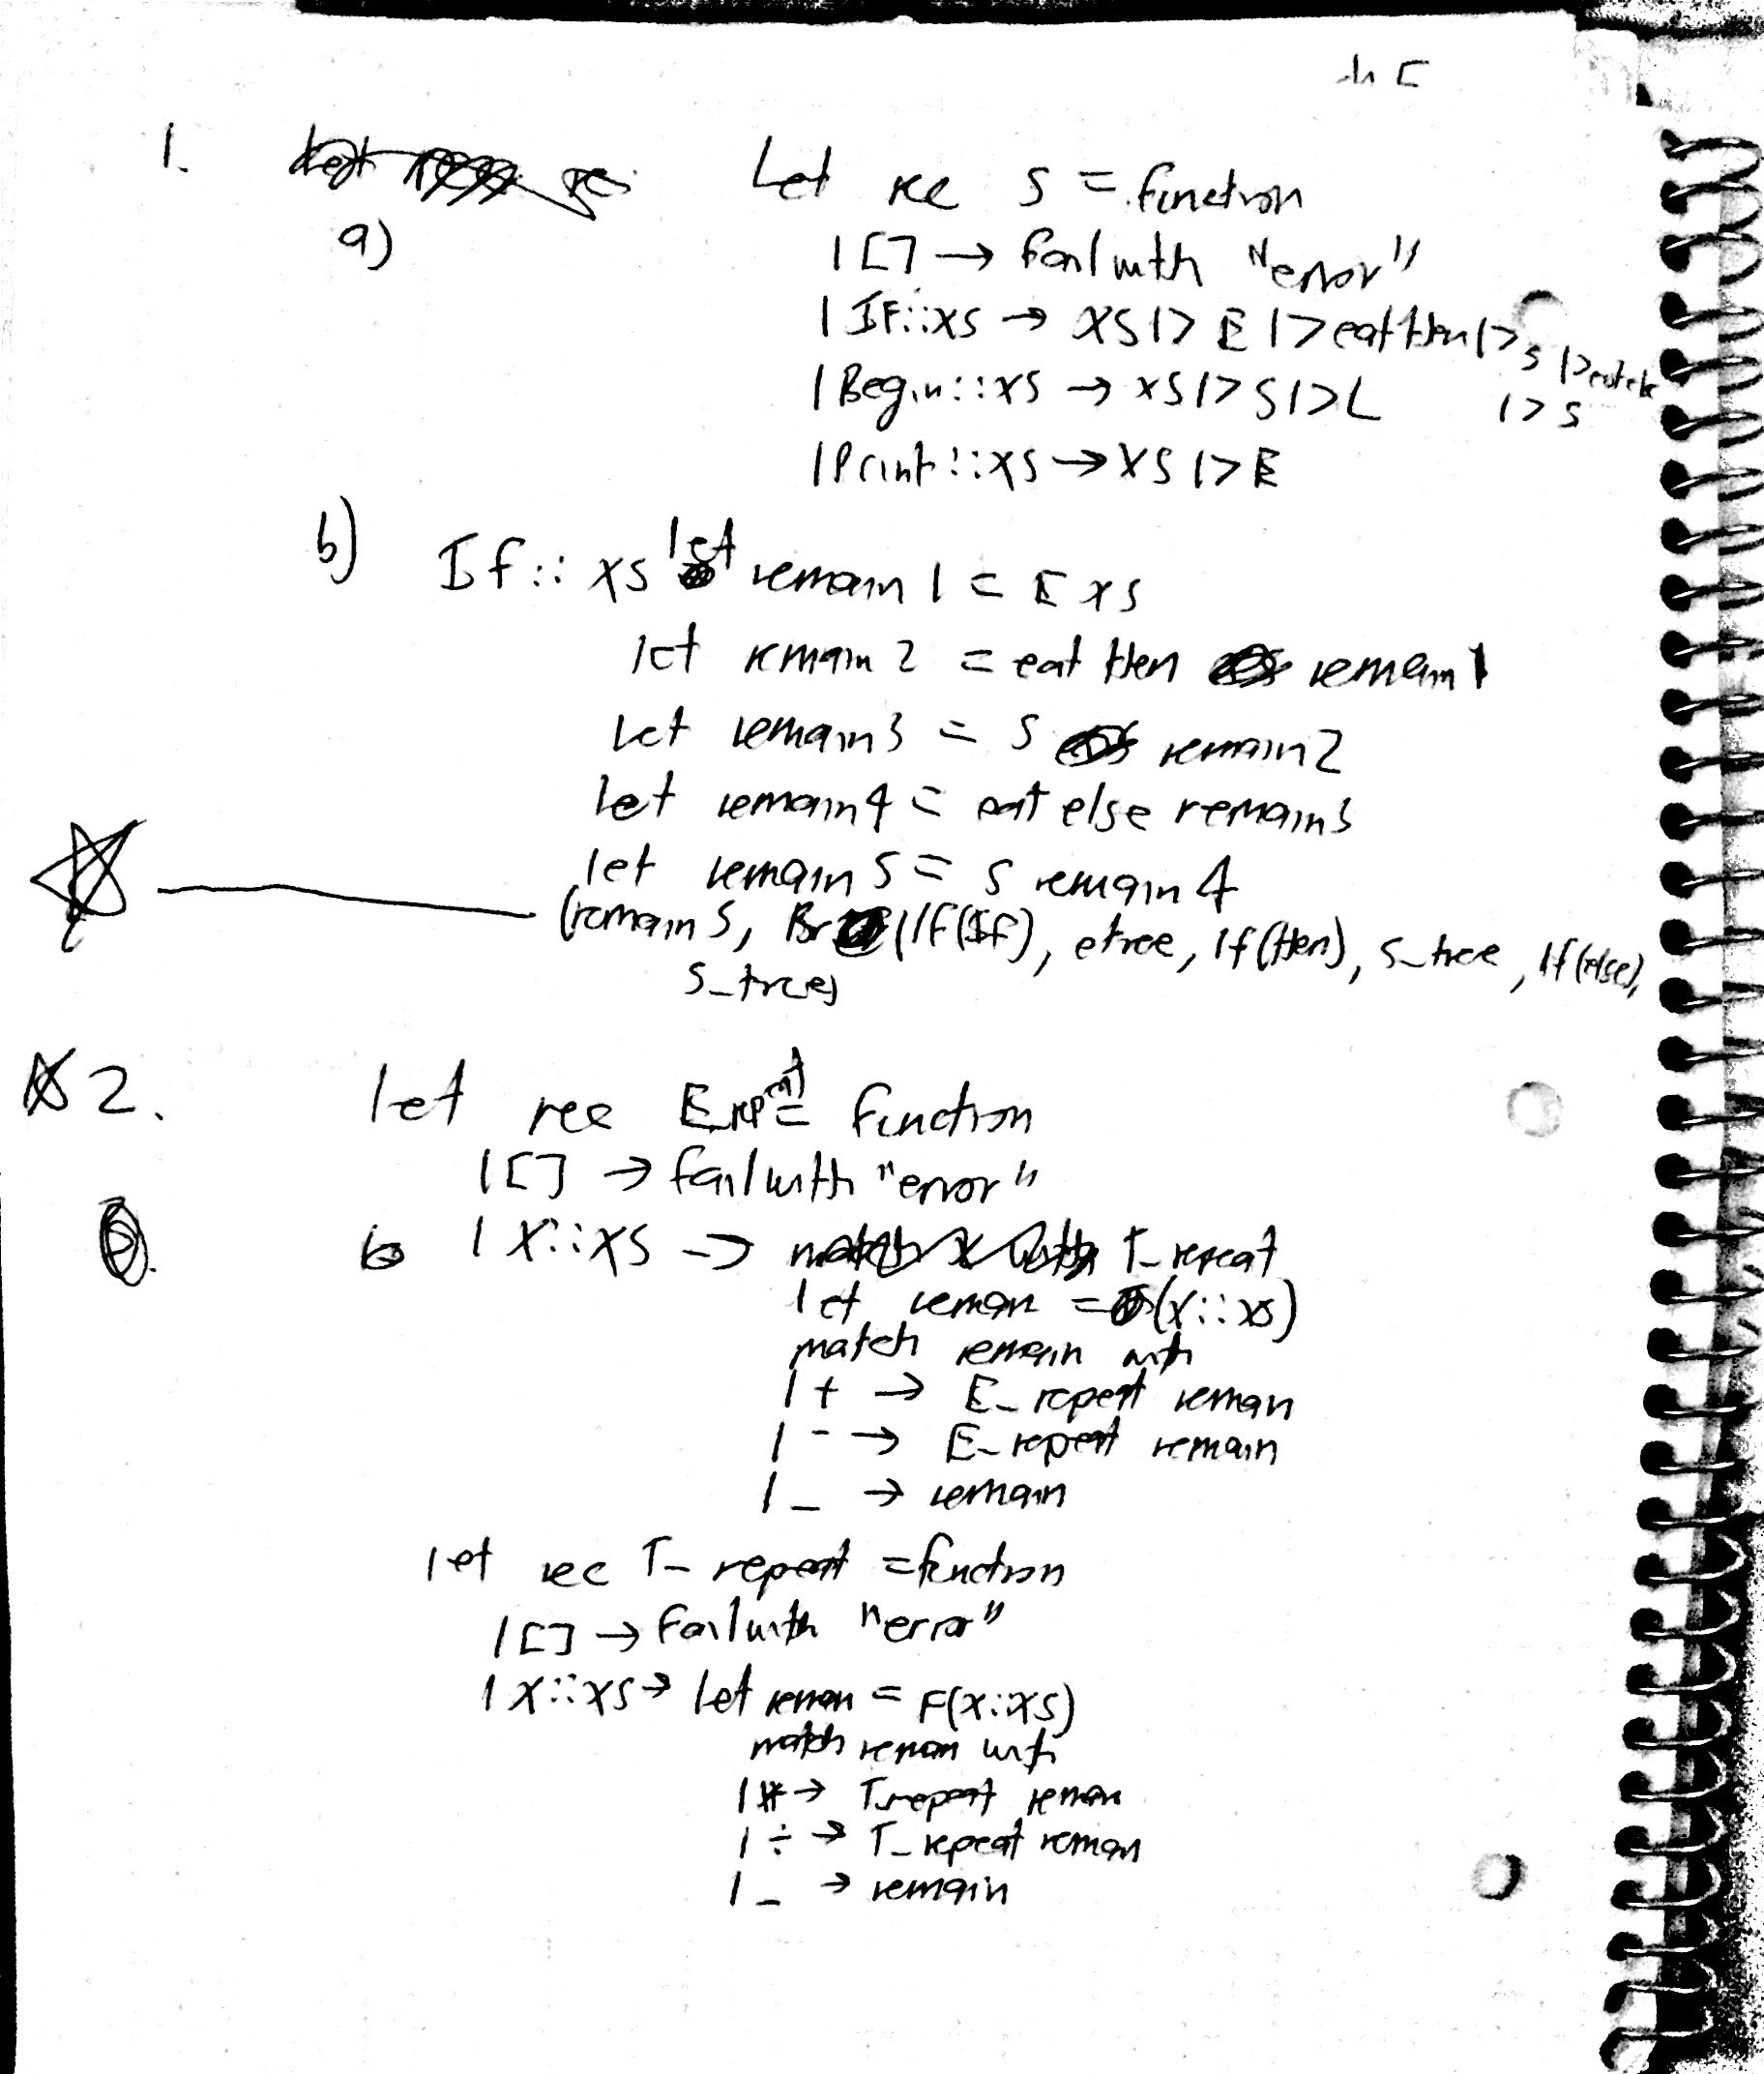 1. Let rec S = function
a)
| [] → failwith "error"
| IF::xs → xs |> E |> eat then |> S |> eat else
|> S
| Begin::xs → xs |> S |> L
| Print::xs → xs |> E
b) If :: xs let remain 1 = E xs
let remain 2 = eat then remain 1
let remain3 = S remain2
let remain4 = eat else remain3
let remain 5 = S remain 4
(remain 5, Br(lf(If), etree, lf(then), s_tree, lf(else),
s_tree)
2. let rec E_repeat = function
| [] → failwith "error"
| X::XS → T_repeat
let remain = (X::xs)
match remain with
| + → E_repeat remain
| - → E_repeat remain
| _ → remain
let rec T_repeat = function
| [] → failwith "error"
| X::XS → let remain = F(X::XS)
match remain with
| * → T_repeat remain
| ÷ → T_repeat remain
| _ → remain